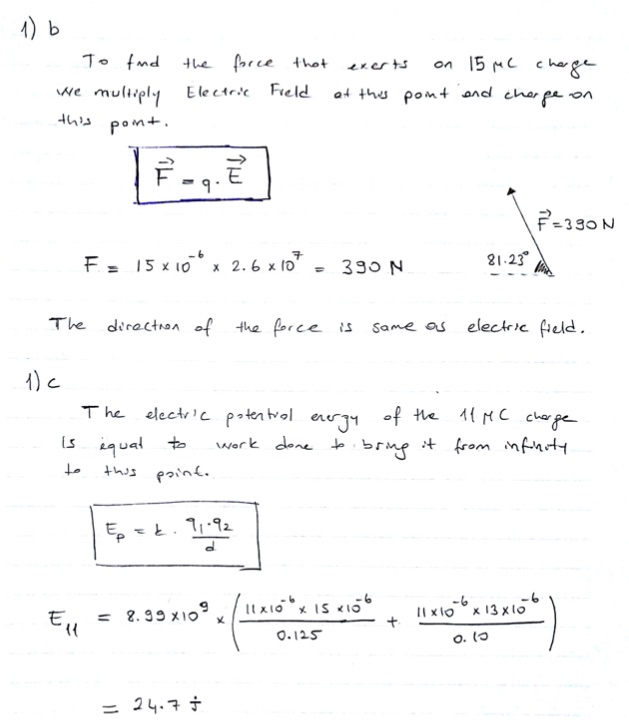 1) b
To find the force that exerts on 15 μC charge
we multiply Electric Field at this point and charge on
this point.
F = q. E
F = 390 N
81.23°
F = 15 x 10^-6 x 2.6 x 10^7 = 390 N
The direction of the force is same as electric field.
1) c
The electric potential energy of the 11 μC charge
is equal to work done to bring it from infinity
to this point.
Ep = k . q1.q2 / d
E11 = 8.99 x10^9 x ( 11x10^-6 x 15 x10^-6 / 0.125 + 11x10^-6 x 13x10^-6 / 0.10 )
= 24.7 J